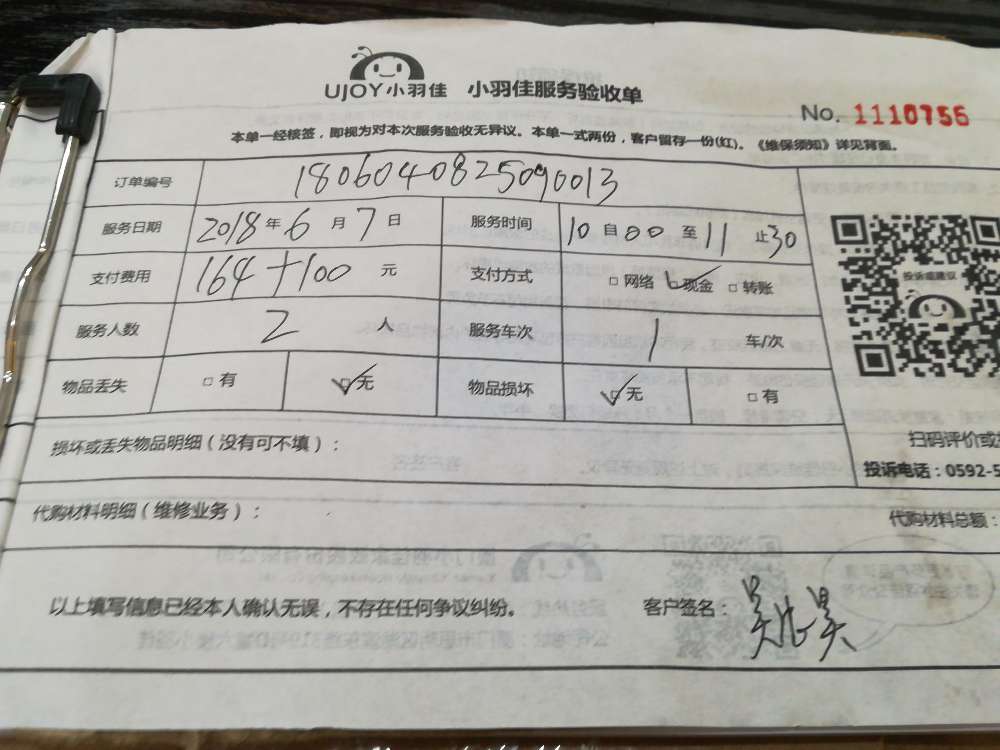 UJOY小羽佳 小羽佳服务验收单
No. 1110756
本单一经核签，即视为对本次服务验收无异议。本单一式两份，客户留存一份(红)。《维保须知》详见背面。
订单编号 1806040825090013
服务日期 2018年6月7日 服务时间 10自00至11止30
支付费用 164+100元 支付方式 □网络 ☑现金 □转账
服务人数 2人 服务车次 1车/次
物品丢失 □有 ☑无 物品损坏 ☑无 □有
投诉或建议
损坏或丢失物品明细（没有可不填）：
扫码评价或
投诉电话：0592-5
代购材料明细（维修业务）： 代购材料总额：
以上填写信息已经本人确认无误，不存在任何争议纠纷。 客户签名：